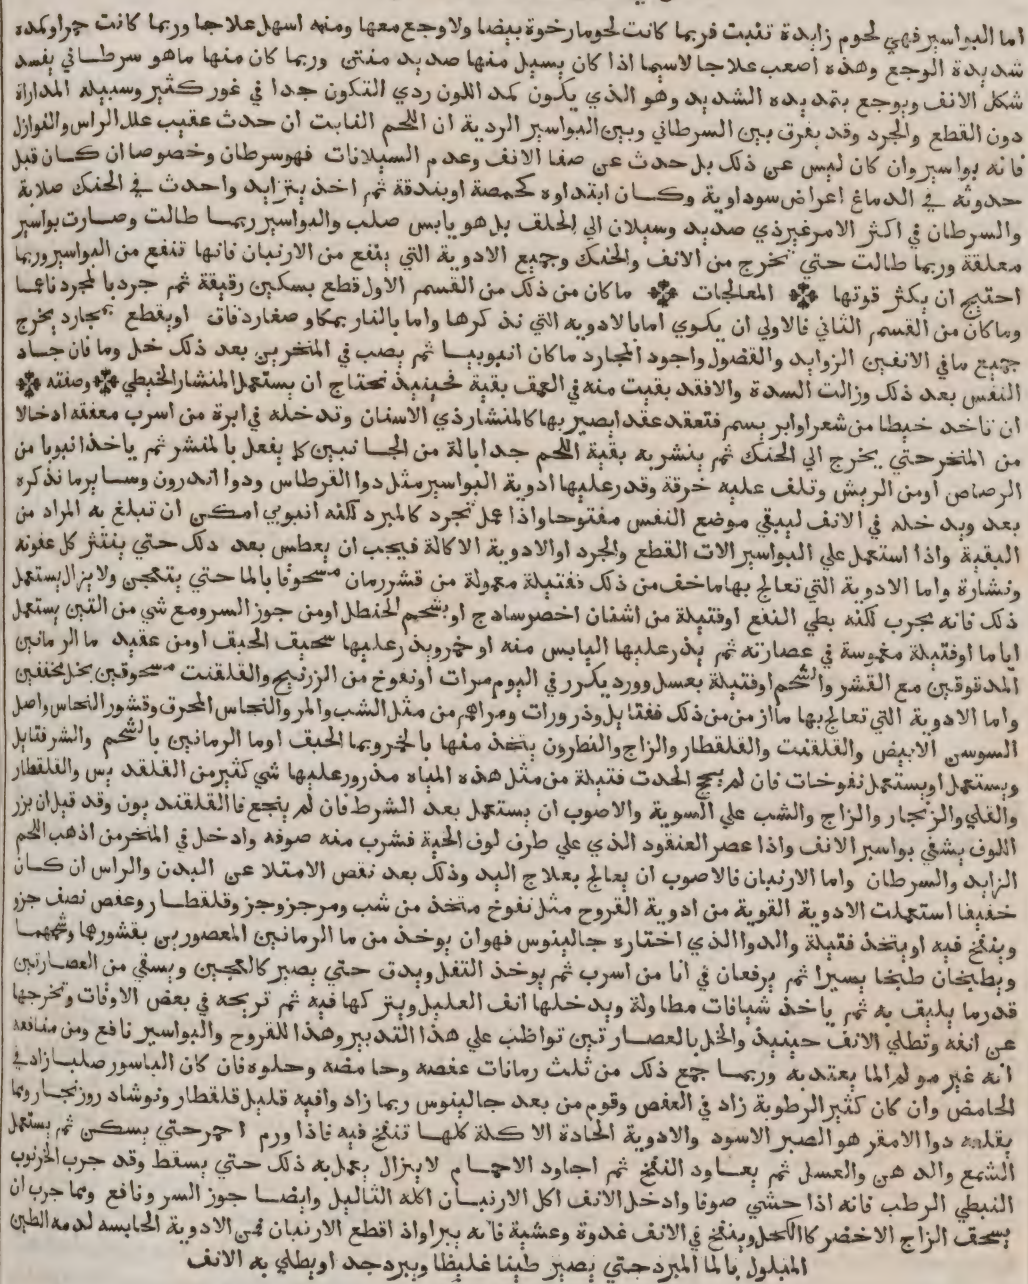 اما البواسير فهي لحوم زايدة تنبت فربما كانت لحوما رخوة بيضا ولا وجع معها ومنه اسهل علاجا وربما كانت حمرا وكمدة
شديدة الوجع وهذه اصعب علاجا لاسيما اذا كان يسيل منها صديد منتن وربما كان منها ماهو سرطاني يفسد
شكل الانف ويوجع بتمديده الشديد وهو الذي يكون كمد اللون ردي التكون جدا في غور كثير وسبيله المداراة
دون القطع والجرد وقد يفرق بين السرطاني وبين البواسير الردية ان اللحم النابت ان حدث عقيب علل الراس والنوازل
فانه بواسير وان كان ليس عن ذلك بل حدث عن صفا الانف وعدم السيلانات فهو سرطان وخصوصا ان كان قبل
حدوثه في الدماغ اعراض سوداوية وكان ابتداوه كحمصة او بندقة ثم اخذ يتزايد واحدث في الحنك صلابة
والسرطان في اكثر الامر غير ذي صديد وسيلان الي الحلف بل هو يابس صلب والبواسير ربما طالت وصارت بواسير
معلقة وربما طالت حتي تخرج من الانف والحنك وجميع الادوية التي ينفع من الارنبان فانها تنفع من البواسير وربما
احتيج ان يكثر قوتها المعالجات ماكان من ذلك من القسم الاول قطع بسكين رقيقة ثم جرد بالمجرد ناعما
وماكان من القسم الثاني فالاولي ان يكوي اما بالادويه التي نذكرها واما بالنار بمكاو صغار دقاق او يقطع بمجارد يخرج
جميع مافي الانفين الزوايد والفضول واجود المجارد ماكان انبوبيا ثم يصب في المنخرين بعد ذلك خل وما فان جاد
النفس بعد ذلك وزالت السدة والا فقد بقيت منه في العمق بقية فحينيذ تحتاج ان يستعمل المنشار الخيطي وصفته
ان تاخذ خيطا من شعر او ابريسم فتعقد عقدا يصير بها كالمنشار ذي الاسنان وتدخله في ابرة من اسرب معقفه ادخالا
من المنخر حتي يخرج الي الحنك ثم ينشر به بقية اللحم جدا بالة من الجانبين كما يفعل بالمنشر ثم ياخذ انبوبا من
الرصاص او من الريش وتلف عليه خرقة وقدر عليها ادوية البواسير مثل دوا القرطاس ودوا اندرون وساير ما نذكره
بعد ويدخله في الانف ليبقي موضع النفس مفتوحا واذا عمل تجرد كالمبرد لكنه انبوبي امكن ان تبلغ به المراد من
البقية واذا استعمل علي البواسير الات القطع والجرد او الادوية الاكالة فيجب ان يعطس بعد ذلك حتي ينتثر كل عفونه
ونشارة واما الادوية التي تعالج بها ماخف من ذلك ففتيلة معمولة من قشر رمان مسحوقا بالما حتي يتعجن ولا يزال يستعمل
ذلك فانه مجرب لكنه بطي النفع او فتيلة من اشنان اخضر سادج او بشحم الحنطل او من جوز السرو مع شي من التين يستعمل
اياما او فتيلة مغموسة في عصارته ثم يذر عليها اليابس منه او خمر ويذر عليها سحيف الحبف او من عقيد ما الرمانين
المدقوقين مع القشر والشحم او فتيلة بعسل وورد يكرر في اليوم مرات او نفوخ من الزرنيج والقلقنت مسحوقين بخل مجففين
واما الادوية التي تعالج بها ما ازمن من ذلك ففتايل وذرورات ومراهم من مثل الشب والمر والنحاس المحرق وقشور النحاس واصل
السوسن الابيض والقلقنت والقلقطار والزاج والنطرون يتخذ منها بالخمر وبما الحبف او ما الرمانين بالشحم والشر فتايل
ويستعمل او يستعمل نفوخات فان لم ينجح الحدت فتيلة من مثل هذه المياه مذرور عليها شي كثير من القلقد يس والقلقطار
والقلي والزنجار والزاج والشب علي السوية والاصوب ان يستعمل بعد الشرط فان لم ينجع فالقلقند يون وقد قيل ان بزر
اللوف يشفي بواسير الانف واذا عصر العنقود الذي علي طرف لوف الحية فشرب منه صوفه وادخل في المنخرمن اذهب اللحم
الزايد والسرطان واما الارنبان فالاصوب ان يعالج بعلاج اليد وذلك بعد نقص الامتلا عن البدن والراس ان كان
خفيفا استعملت الادوية القوية من ادوية القروح مثل نفوخ متخذ من شب ومر جزو جز وقلقطار وعفص نصف جزو
وينفخ فيه او يتخذ فتيلة والدوا الذي اختاره جالينوس فهو ان يوخذ من ما الرمانين المعصورين بقشورها وشحمهما
ويطبخان طبخا يسيرا ثم يرفعان في انا من اسرب ثم يوخذ التفل ويدق حتي يصير كالعجين ويسقي من العصارتين
قدر ما يليق به ثم ياخذ شيافات مطاولة ويدخلها انف العليل ويتركها فيه ثم تريحه في بعض الاوقات وتخرجها
عن انفه وتطلي الانف حينيذ والخل بالعصارتين تواظب علي هذا التدبير وهذا للقروح والبواسير نافع ومن منافعه
انه غير مولم الما يعتد به وربما جمع ذلك من ثلث رمانات عفصه وحامضه وحلوه فان كان الباسور صلبا زاد في
الحامض وان كان كثير الرطوبة زاد في العفص وقوم من بعد جالينوس ربما زاد وافيه قليل قلقطار ونوشاد روزنجار ومما
يقلعه دوا الامقر هو الصبر الاسود والادوية الحادة الاكلة كلها تنفخ فيه فاذا ورم احمر حتي يسكن ثم يستعمل
الشمع والدهن والعسل ثم يعاود النفخ ثم اجاود الاحمام لا يزال يعمل به ذلك حتي يسقط وقد جرب الخرنوب
النبطي الرطب فانه اذا حشي صوفا وادخل الانف اكل الارنبان اكله الثاليل وايضا جوز السرو نافع ومما جرب ان
يسحق الزاج الاخضر كالكحل وينفخ في الانف غدوة وعشية فانه يبرا واذ اقطع الارنبان فمن الادوية الحابسه لدمه الطين
المبلول بالما المبرد حتي يصير طينا غليظا ويبرد جدا ويطلي به الانف